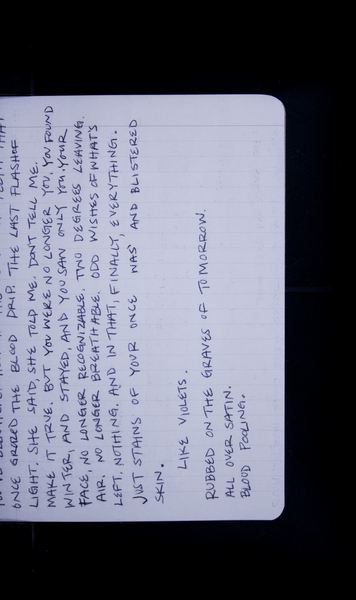 ONCE GRACED THE BLOOD DRIP. THE LAST FLASH OF
LIGHT, SHE SAID, SHE TOLD ME. DON'T TELL ME.
MAKE IT TRUE. BUT YOU WERE NO LONGER YOU. YOU FOUND
WINTER, AND STAYED, AND YOU SAW ONLY YOU. YOUR
FACE, NO LONGER RECOGNIZABLE. TWO DEGREES LEAVING.
AIR. NO LONGER BREATHABLE. ODD WISHES OF WHAT'S
LEFT. NOTHING. AND IN THAT, FINALLY, EVERYTHING.
JUST STAINS OF YOUR ONCE WAS AND BLISTERED
SKIN.
LIKE VIOLETS.
RUBBED ON THE GRAVES OF TOMORROW.
ALL OVER SATIN.
BLOOD POOLING.